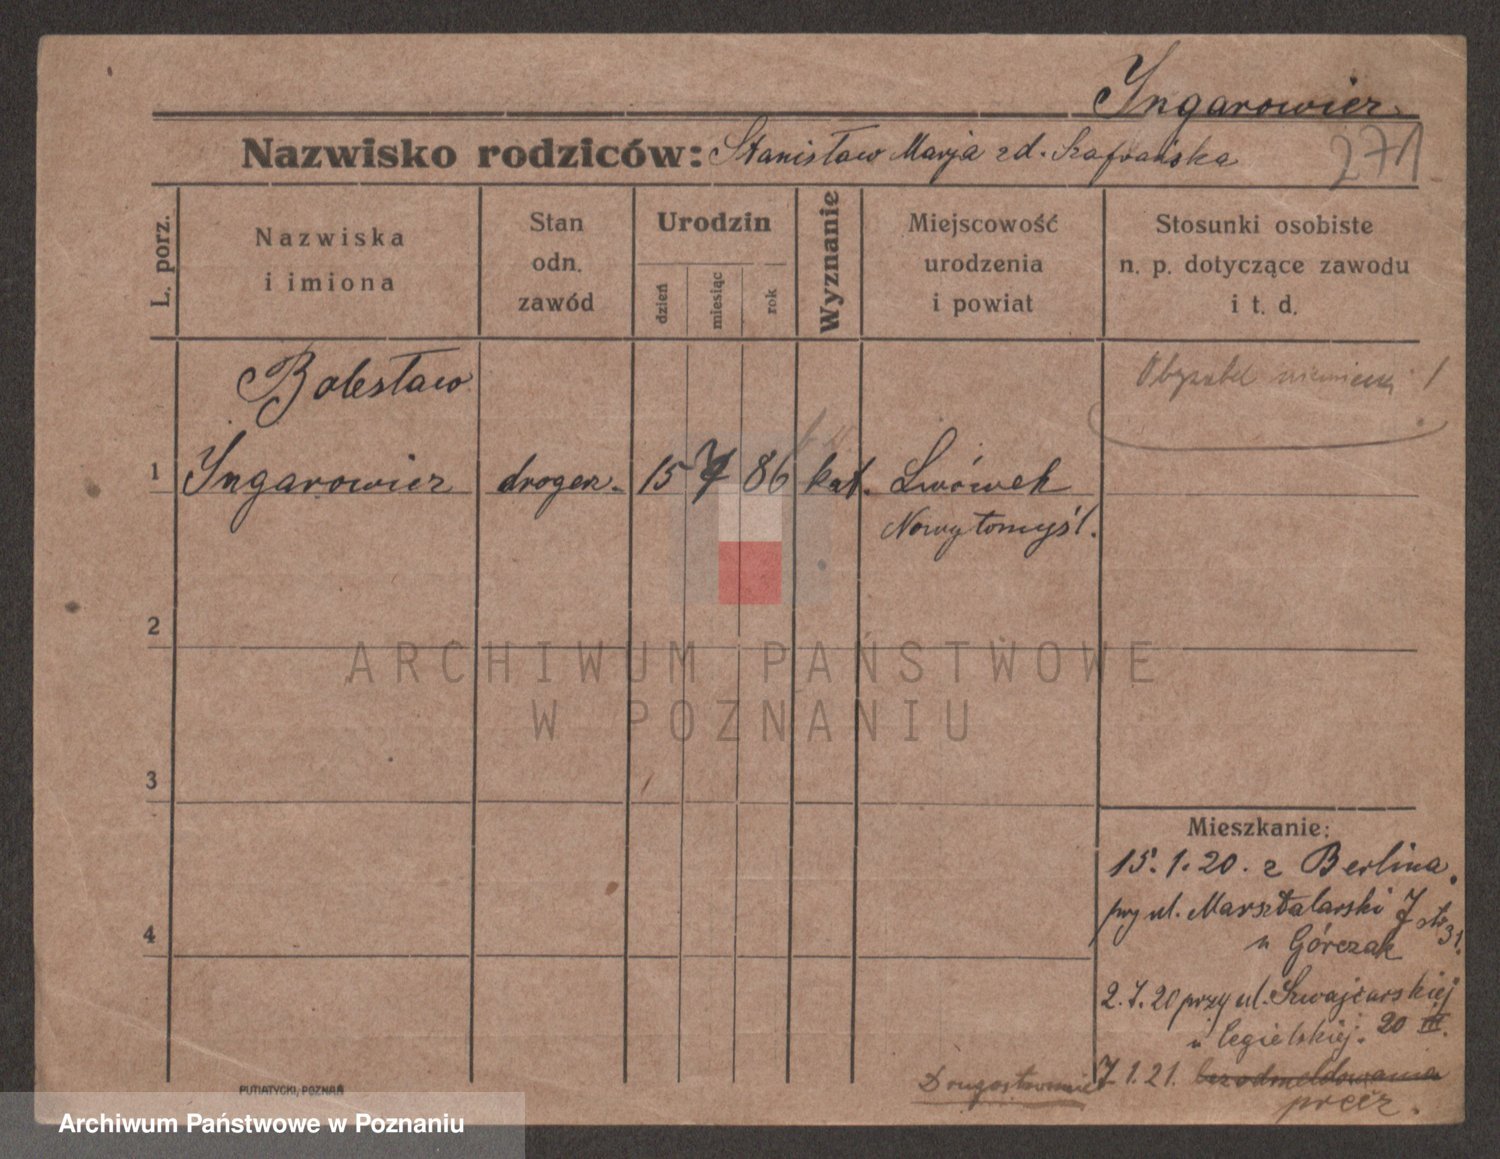 Yngarowicz
Nazwisko rodziców: Stanisław Marja zd. Szafrańska
271
L. porz.
Nazwiska
i imiona
Stan
odn.
zawód
Urodzin
dzień
miesiąc
rok
Wyznanie
Miejscowość
urodzenia
i powiat
Stosunki osobiste
n. p. dotyczące zawodu
i t. d.
Obywatel niemiecki !
Bolesław
1 Yngarowicz drogerz. 15 7 86 kat. Lwówek
Nowytomyśl.
2
3
4
ARCHIWUM PAŃSTWOWE
W POZNANIU
Mieszkanie:
15.1.20. z Berlina.
przy ul. Marsztalarski 7 str 31.
u Górczak
2.7.20 przy ul. Szwajcarskiej
20 III.
u Cegielskiej.
Drugostronnie 7.1.21. bez odmeldowania
precz.
PUTIATYCKI, POZNAŃ
Archiwum Państwowe w Poznaniu